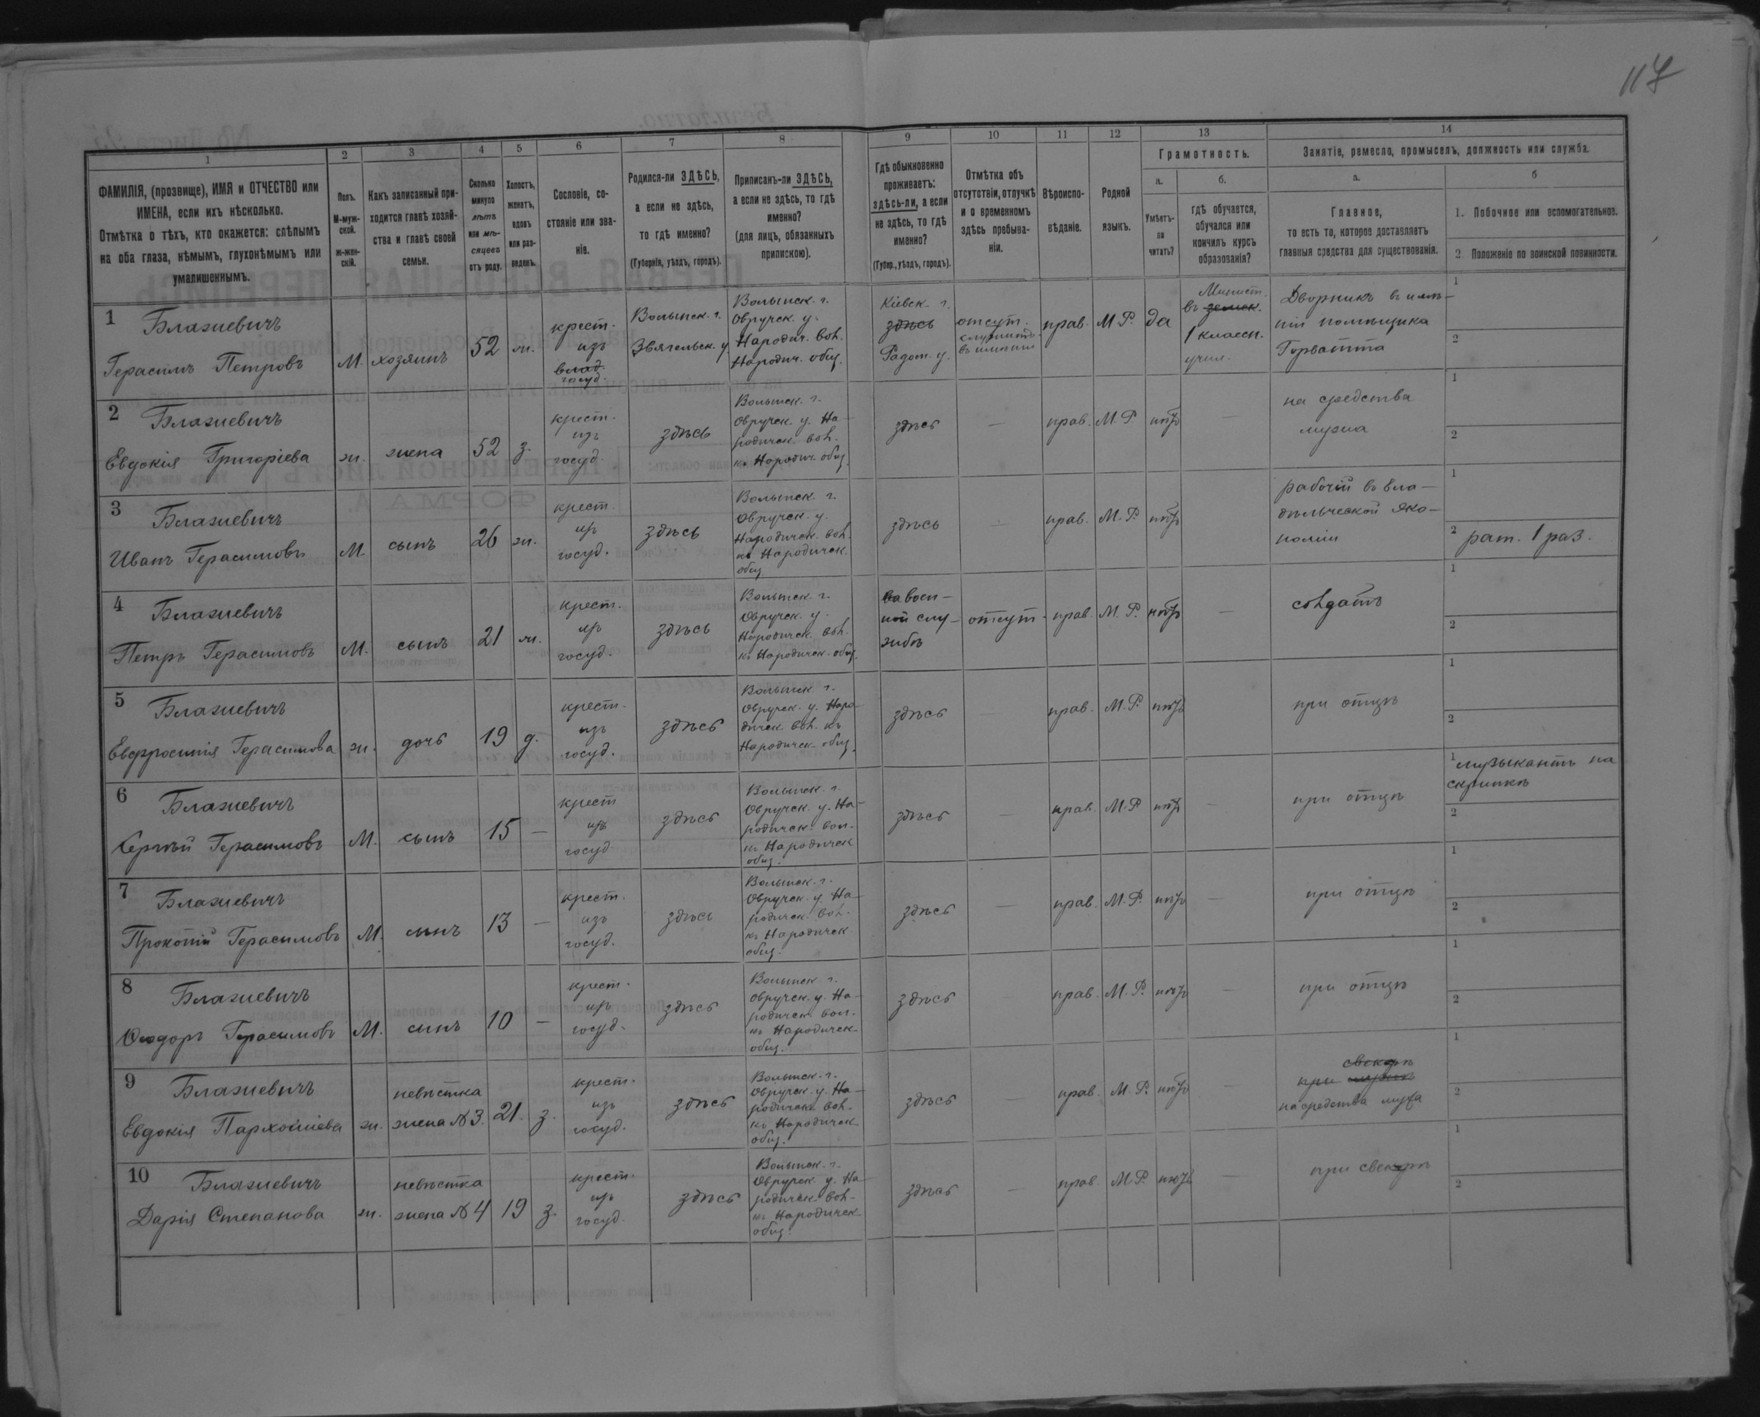 117
1 2 3 4 5 6 7 8 9 10 11 12 13 14
ФАМИЛІЯ, (прозвище), ИМЯ и ОТЧЕСТВО или
ИМЕНА, если ихъ нѣсколько.
Отмѣтка о тѣхъ, кто окажется: слѣпымъ
на оба глаза, нѣмымъ, глухонѣмымъ или
умалишеннымъ.
Полъ.
М-муж-
ской.
ж-жен-
скій.
Какъ записанный при-
ходится главѣ хозяй-
ства и главѣ своей
семьи.
Сколько
минуло
лѣтъ
или мѣ-
сяцевъ
отъ роду.
Холостъ,
женатъ,
вдовъ
или раз-
веденъ.
Сословіе, со-
стояніе или зва-
ніе.
Родился-ли ЗДѢСЬ,
а если не здѣсь,
то гдѣ именно?
(Губернія, уѣздъ, городъ).
Приписанъ-ли ЗДѢСЬ,
а если не здѣсь, то гдѣ
именно?
(для лицъ, обязанныхъ
припискою).
Гдѣ обыкновенно
проживаетъ:
здѣсь-ли, а если
не здѣсь, то гдѣ
именно?
(Губер., уѣздъ, городъ).
Отмѣтка объ
отсутствіи, отлучкѣ
и о временномъ
здѣсь пребыва-
ніи.
Вѣроиспо-
вѣданіе.
Родной
языкъ.
Грамотность.
а.
Умѣетъ-
ли
читать?
б.
гдѣ обучается,
обучался или
кончилъ курсъ
образованія?
Занятіе, ремесло, промыселъ, должность или служба.
а.
Главное,
то есть то, которое доставляетъ
главныя средства для существованія.
б
1. Побочное или вспомогательное.
2. Положеніе по воинской повинности.
1 Блажиевичъ
Герасимъ Петровъ
М. хозяинъ 52 ж.
крест.
изъ
влад.
госуд.
Волынск. г.
Звягельск. у
Волынск. г.
Овручск. у.
Народич. вол.
Народич. общ.
Кіевск. г.
здѣсь
Радом. у.
отсут.
служитъ
въ имѣніи
прав. М.Р. да
Минист.
въ земск.
1 классн.
учил.
Дворникъ въ имѣ-
ніи помѣщика
Горватта
1
2
2 Блажиевичъ
Евдокія Григоріева
ж. жена 52 з.
крест.
изъ
госуд.
здѣсь
Волынск. г.
Овручск. у. На-
родическ. вол.
къ Народич. общ.
здѣсь — прав. М.Р. нѣтъ —
на средства
мужа
1
2
3 Блажиевичъ
Иванъ Герасимовъ
М. сынъ 26 ж.
крест.
изъ
госуд.
здѣсь
Волынск. г.
Овручск. у.
Народическ. вол.
къ Народическ.
общ.
здѣсь прав. М.Р. нѣтъ
рабочій въ вла-
дѣльческой эко-
номіи
1
2 рат. 1 раз.
4 Блажиевичъ
Петръ Герасимовъ
М. сынъ 21 ж.
крест.
изъ
госуд.
здѣсь
Волынск. г.
Овручск. у.
Народическ. вол.
къ Народическ. общ.
на воен-
ной слу-
жбѣ
отсут. прав. М.Р. нѣтъ —
солдатъ
1
2
5 Блажиевичъ
Евфросинія Герасимова
ж. дочь 19 д.
крест.
изъ
госуд.
здѣсь
Волынск. г.
Овручск. у. Наро-
дическ. вол. къ
Народическ. общ.
здѣсь прав. М.Р. нѣтъ
при отцѣ
1
2
6 Блажиевичъ
Сергѣй Герасимовъ
М. сынъ 15 —
крест
изъ
госуд.
здѣсь
Волынск. г.
Овручск. у. На-
родическ. вол.
къ Народическ
общ.
здѣсь — прав. М.Р. нѣтъ —
при отцѣ
1 музыкантъ на
скрипкѣ
2
7 Блажиевичъ
Прокопій Герасимовъ
М. сынъ 13 —
крест.
изъ
госуд.
здѣсь
Волынск. г.
Овручск. у. На-
родическ. вол.
къ Народическ
общ.
здѣсь — прав. М.Р. нѣтъ —
при отцѣ
1
2
8 Блажиевичъ
Ѳеодоръ Герасимовъ
М. сынъ 10 —
крест.
изъ
госуд.
здѣсь
Волынск. г.
Овручск. у. На-
родическ. вол.
къ Народическ.
общ.
здѣсь — прав. М.Р. нѣтъ —
при отцѣ
1
2
9 Блажиевичъ
Евдокія Пархоміева
ж.
невѣстка
жена №3.
21. з.
крест.
изъ
госуд.
здѣсь
Волынск. г.
Овручск. у. На-
родическ. вол.
къ Народическ.
общ.
здѣсь — прав. М.Р. нѣтъ —
свекрѣ
при мужѣ
на средства мужа
1
2
10 Блажиевичъ
Дарія Степанова
ж.
невѣстка
жена №4
19 з.
крест.
изъ
госуд.
здѣсь
Волынск. г.
Овручск. у. На-
родическ. вол.
къ Народическ.
общ.
здѣсь — прав. М.Р. нѣтъ —
при свекрѣ
1
2